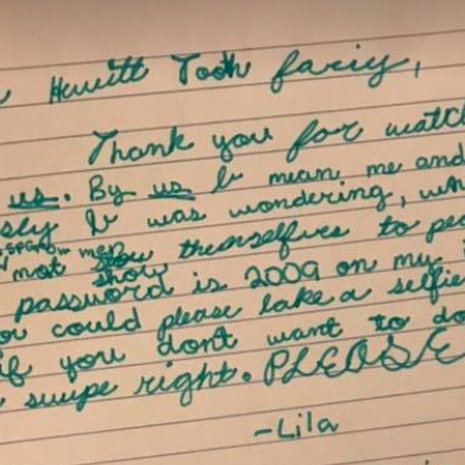 Hewitt Tooth fairy,
Thank you for watch
us. By us I mean me and
sly I was wondering, wh
most show themselves to pe
show
password is 2009 on my
ou could please take a selfie
if you dont want to do
swipe right. PLEASE
-Lila